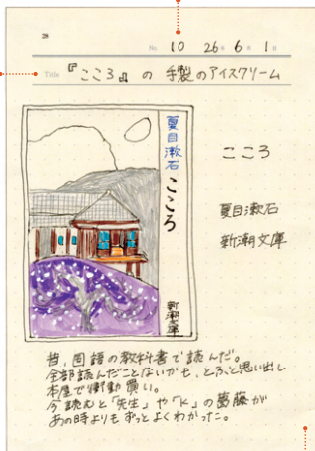 28
No 10 26年 6月 1日
Title 『こころ』の 手製のアイスクリーム
夏目漱石 こころ
新潮文庫
こころ
夏目漱石
新潮文庫
昔、国語の教科書で読んだ。
全部読んだことないかも、とふと思い出し
本屋で衝動買い。
今読むと「先生」や「K」の葛藤が
あの時よりもずっとよくわかった。